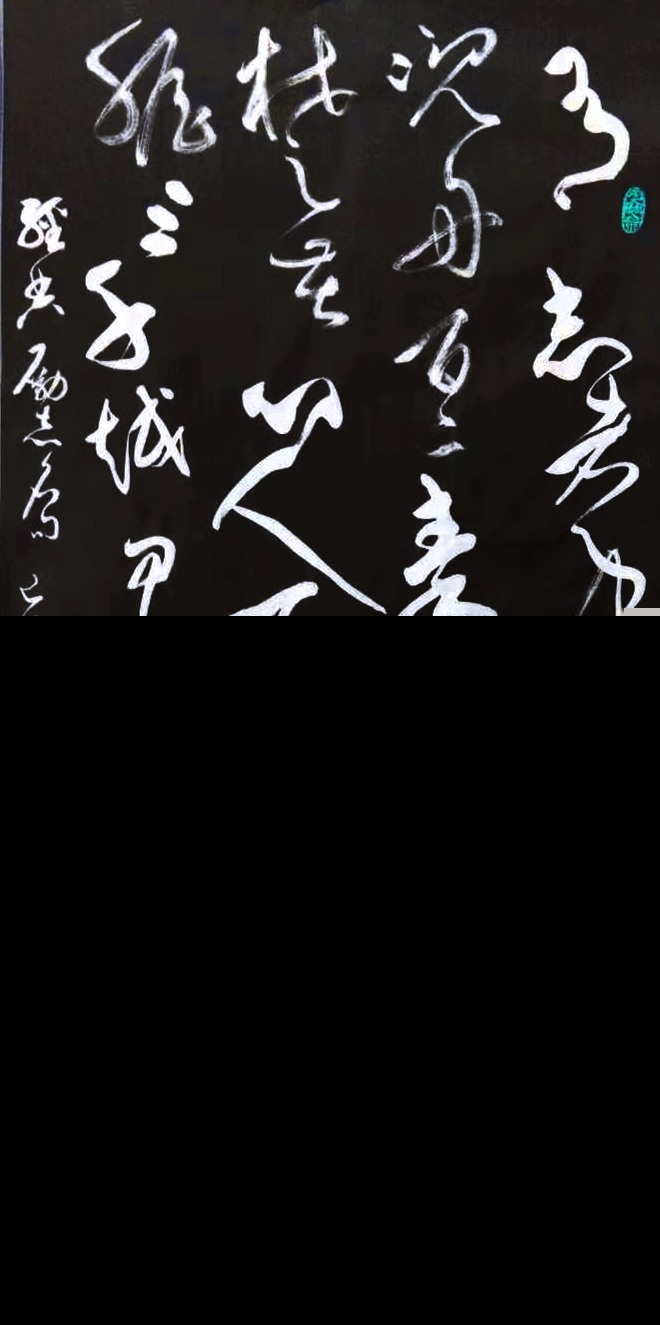 有志者事
沉舟百二秦
楚苦心人
胆三千越甲
经典励志名句